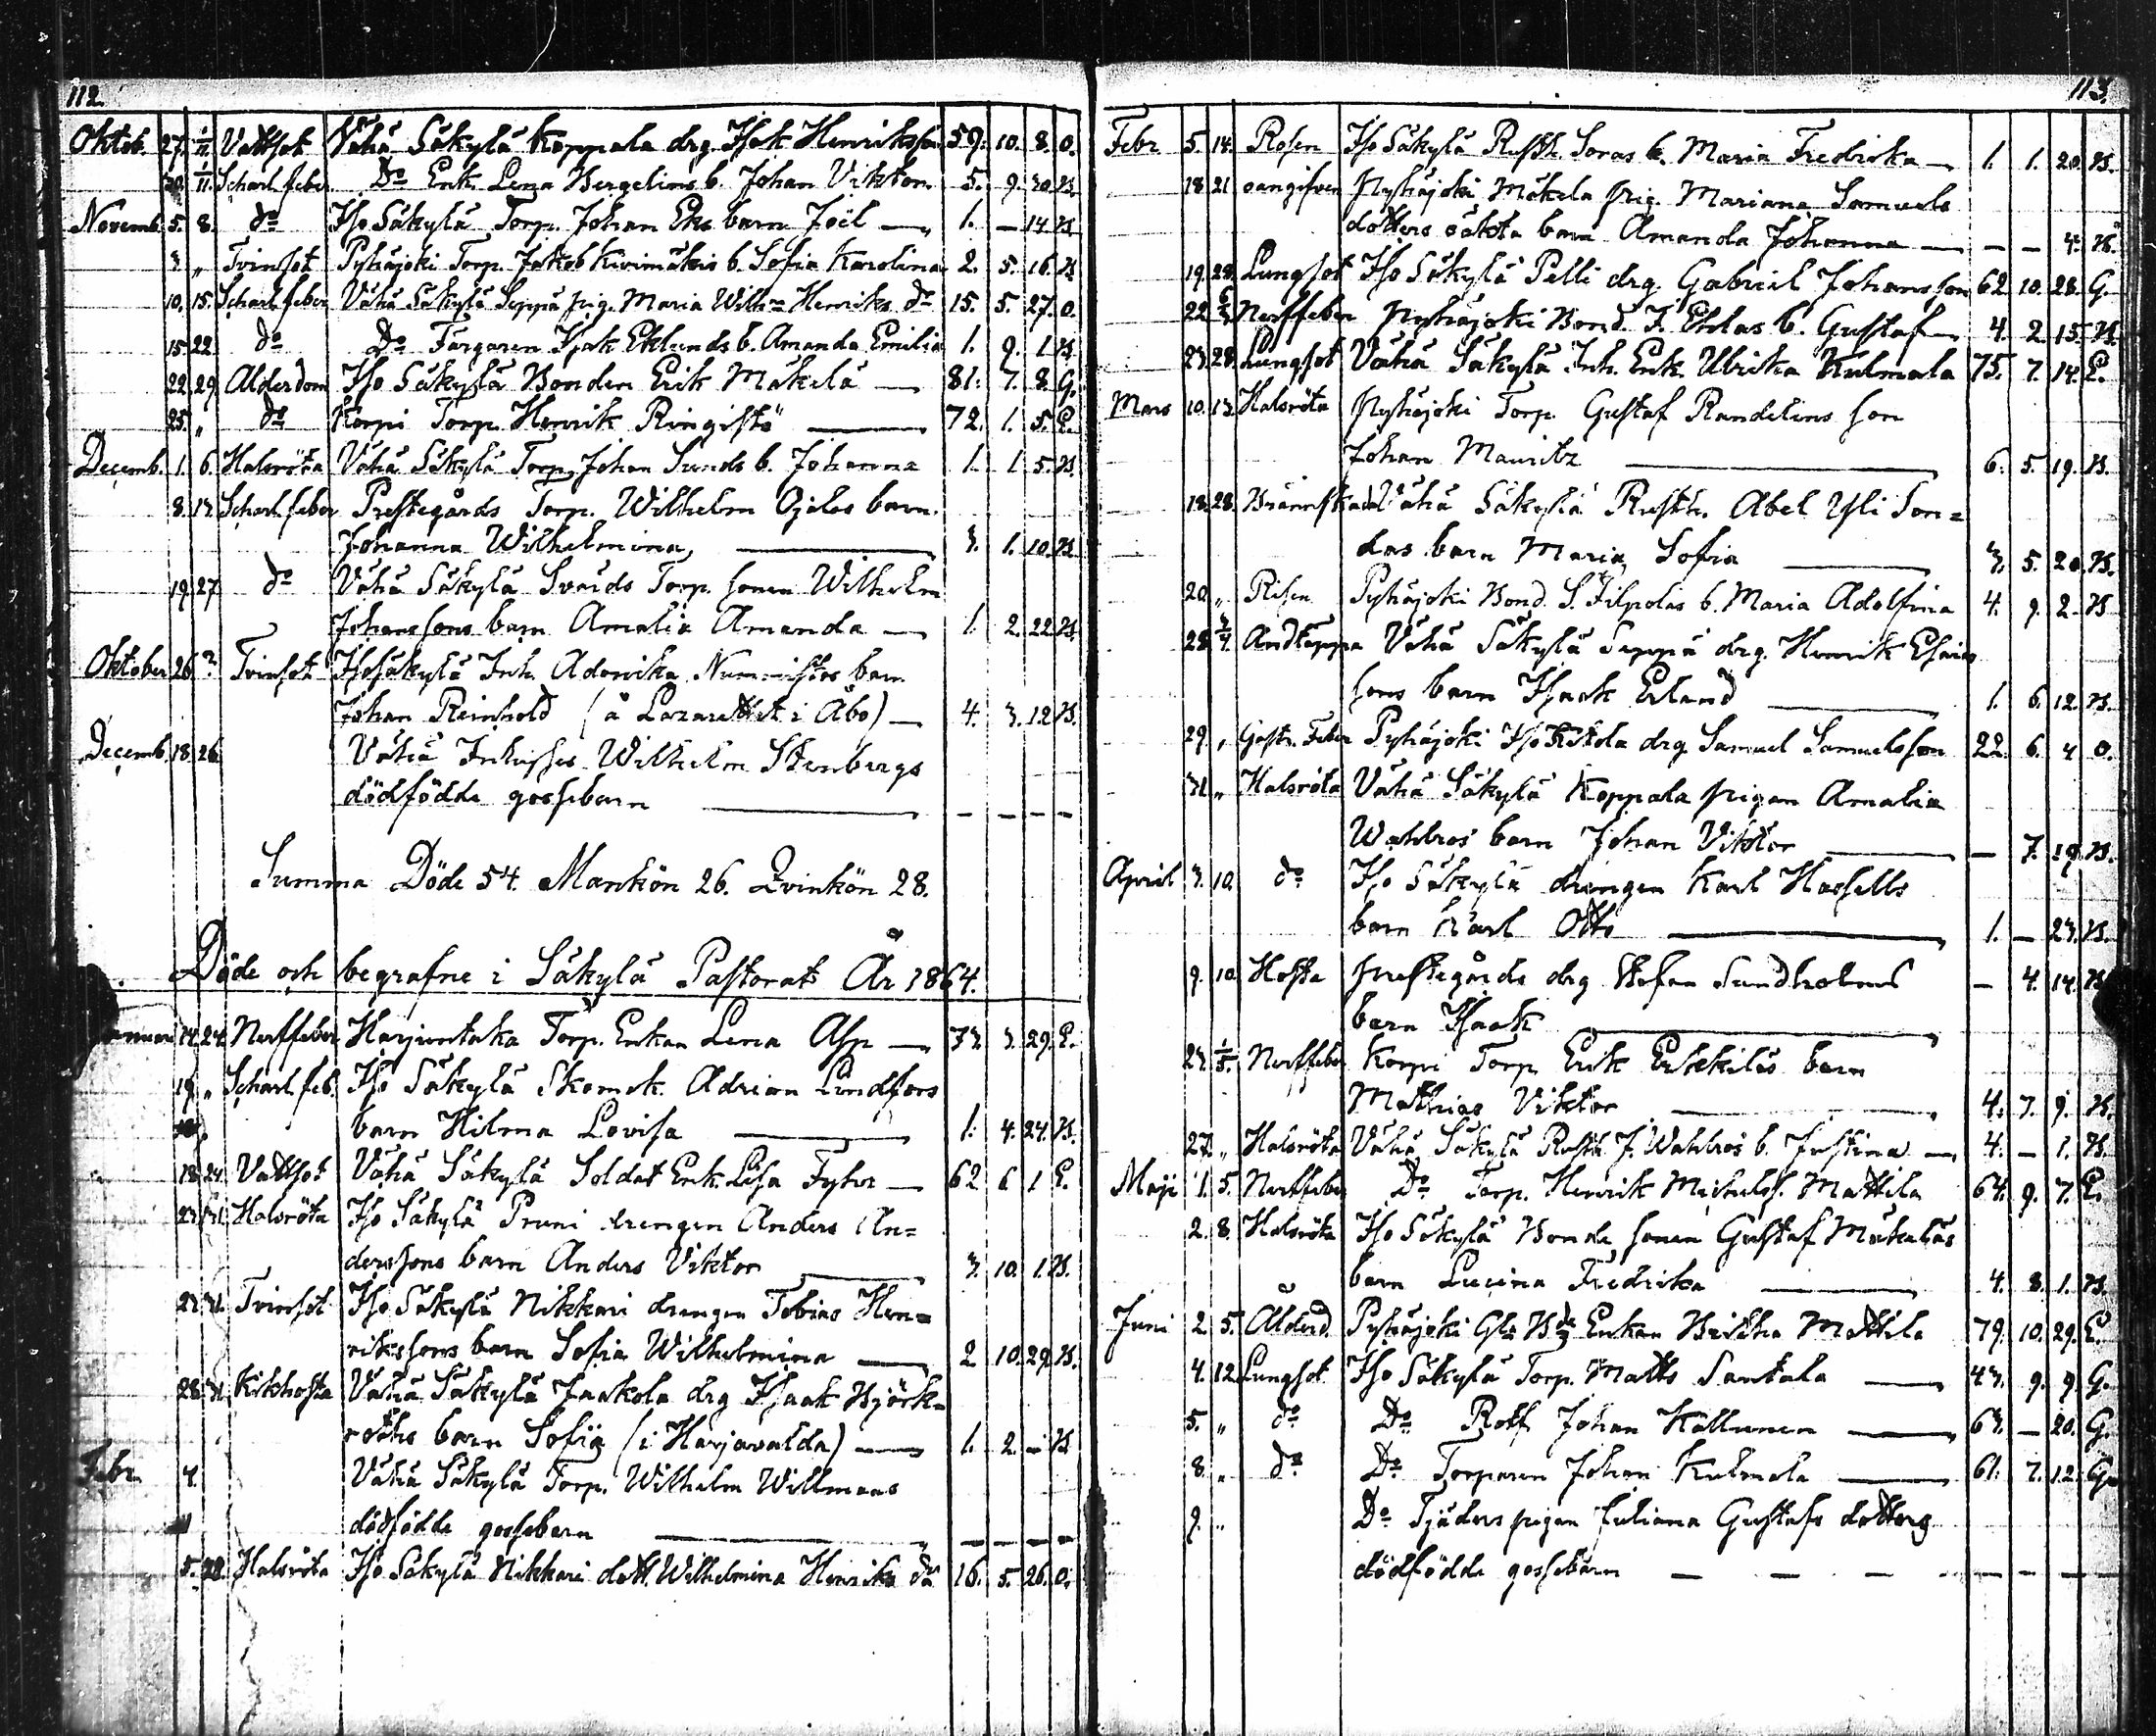 112.
Oktob. 27. 1/11. Vattsot Vähä Säkylä Koppala drg. Isak Henriksson 59. 10. 8. O.
30. 1/11. Scharl. feber Do Enk. Lena Bergelins b. Johan Viktor. 5. 9. 30. B.
Novemb. 5. 8. do Iso Säkylä Torp. Johan Eks barn Joël — 1. — 14. B.
3. „ Tvinsot Pyhäjoki Torp. Jakob Kivimäkis b. Sofia Karolina 2. 5. 16. B.
10. 15. Scharl. feber Vähä Säkylä Seppä pig. Maria Wilh:na Henriks dr 15. 5. 27. O.
15. 22. do Do Färgaren Isak Eklunds b. Amanda Emilia 1. 9. 1. B.
22. 29. Ålderdom Iso Säkylä Bonden Erik Mäkilä — 81. 7. 8. G.
25. „ do Korpi Torp. Henrik Ringistö — 72. 1. 5. E.
Decemb. 1. 6. Halsröta Vähä Säkylä Torp. Johan Lunds b. Johanna 1. 1. 5. B.
8. 13. Scharl. feber Prestegårds Torp. Wilhelm Ojalas barn
Johanna Wilhelmina — 3. 1. 10. B.
19. 27. do Vähä Säkylä Svärds Torp. sonen Wilhelm
Johanssons barn Amalia Amanda — 1. 2. 22. B.
Oktober 26. ? Tvinsot Isosäkylä Inh. Adovika Nummistos barn
Johan Reinhold (å Lazarettet i Åbo) — 4. 3. 12. B.
Decemb. 18. 26. Vähä Inhyses Wilhelm Stenbergs
dödfödde gossebarn — — — — —
Summa Döde 54. Mankön 26. Qvinkön 28.
Döde och begrafne i Säkylä Pastorat År 1864.
Januari 14. 24. Nerffeber Harjuntaka Torp. Enkan Lena Asp — 73. 3. 29. E.
19. „ Scharl. feb. Iso Säkylä Skomak. Adrian Lindfors
barn Hilma Lovisa — 1. 4. 24. B.
18. 24. Vattsot Vähä Säkylä Soldat Enk. Lisa Fyhr — 62 6 1 E.
23. 31. Halsröta Iso Säkylä Pruni drengen Anders An=
derssons barn Anders Viktor — 3. 10. 1. B.
23. 31. Tvinsot Iso Säkylä Nikkari drengen Tobias Hen=
rikssons barn Sofia Wilhelmina — 2 10. 29. B.
28. 31. Kikhosta Vähä Säkylä Jaakola drg Isaak Björk=
roths barn Sofia (i Harjavalda) — 1. 2. — B
Febr. 4. Vähä Säkylä Torp. Wilhelm Willmans
dödfödde gossebarn — — — — —
5. 28. Halsröta Iso Säkylä Nikkari dott. Wilhelmina Henriks dr 16. 5. 26. O.
113.
Febr. 5. 14. Rosen Iso Säkylä Rusth. Soras b. Maria Fredrika — 1. 1. 20. B.
18. 21. oangifven Pyhäjoki Mäkelä pig. Mariana Samuels
dotters oäkta barn Amanda Johanna — — — 4. B.
19. 28. Lungsot Iso Säkylä Pelli drg. Gabriel Johansson 62 10. 28. G.
22. 6/3 Nerffeber Pyhäjoki Bond. J. Ehtas b. Gustaf — 4. 2. 15. B.
23. 28. Lungsot Vähä Säkylä Inh. Enk. Ulrika Kulmala 75. 7. 14. E.
Mars 10. 13. Halsröta Pyhäjoki Torp. Gustaf Randelins son
Johan Mauritz — 6. 5. 19. B.
18. 28. Brännskada Vähä Säkylä Rusth. Abel Yli Son=
das barn Maria Sofia — 3. 5. 20. B.
20. „ Risen Pyhäjoki Bond. S. Filpolas b. Maria Adolfina 4. 9. 2. B
28. 3/4. Andtäppa Vähä Säkylä Seppä drg. Henrik Esaias
sons barn Isaak Erland — 1. 6. 12. B.
29. „ Gastr. Feber Pyhäjoki Iso Kitola drg Samuel Samuelsson 22. 6. 4 O.
31. „ Halsröta Vähä Säkylä Koppala pigan Amalia
Wahlros barn Johan Viktor — — 7. 19. B.
April 3. 10. do Iso Säkylä drengen Karl Hassells
barn Karl Otto — 1. — 23. B.
9. 10. Hosta Prestegårds drg Stefan Sundholms — 4. 14. B
barn Isaak —
23. 1/5. Nerffeber Korpi Torp. Erik Erkkiläs barn
Mathias Viktor — 4. 7. 9. B.
27. „ Halsröta Vähä Säkylä Rusth. J. Wahlros b. Justina — 4. — 1. B.
Maji 1. 5. Nerffeber Do Torp. Henrik Michelss. Mattila 64. 9. 7. E.
2. 8. Halsröta Iso Säkylä Bonde sonen Gustaf Mäkeläs
barn Lucina Fredrika — 4. 8. 1. B.
Juni 2. 5. Ålderd. Pyhäjoki Gla Bde Enkan Britha Mattila 79. 10. 29. E.
4. 12. Lungsot Iso Säkylä Torp. Matts Santala — 43. 9. 9. G.
5. „ do Do Rotf. Johan Källunen — 63. — 20. G.
8. „ do Do Torparen Johan Kulmala — 61. 7. 12. G.
9. „ Do Tjäders pigan Juliana Gustafs dotters
dödfödde gossebarn — — — — — — — —